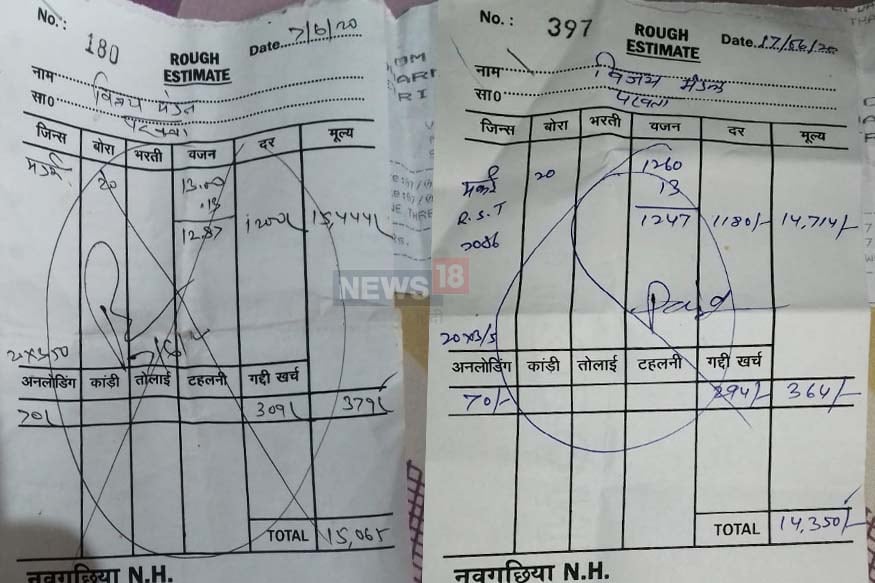 No.: 180
ROUGH
ESTIMATE
Date 7/6/20
नाम विजय मंडल
सा0
जिन्स बोरा भरती वजन दर मूल्य
मकई 20 13.00
.13
12.87 1200/- 15,444/-
20×3.50
अनलोडिंग कांड़ी तोलाई टहलनी गद्दी खर्च
70/- 309/- 379/-
TOTAL 15,065
नवगछिया N.H.
No.: 397
ROUGH
ESTIMATE
Date 17/06/20
नाम विजय मंडल
सा0
जिन्स बोरा भरती वजन दर मूल्य
मकई 20 1260
13
R.S.T 1247 1180/- 14,714/-
2086
Paid
20×3/5
अनलोडिंग कांड़ी तोलाई टहलनी गद्दी खर्च
70/- 294/- 364/-
TOTAL 14,350/-
नवगछिया N.H.
NEWS 18